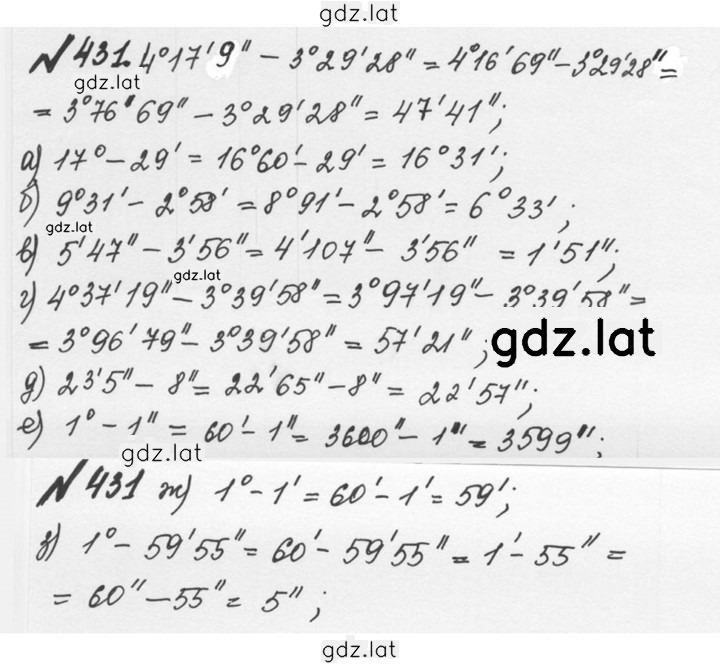 gdz.lat
№431. 4°17'9" - 3°29'28" = 4°16'69" - 3°29'28" =
gdz.lat
= 3°76'69" - 3°29'28" = 47'41";
а) 17° - 29' = 16°60' - 29' = 16°31';
б) 9°31' - 2°58' = 8°91' - 2°58' = 6°33';
gdz.lat
в) 5'47" - 3'56" = 4'107" - 3'56" = 1'51";
gdz.lat
г) 4°37'19" - 3°39'58" = 3°97'19" - 3°39'58" =
= 3°96'79" - 3°39'58" = 57'21";
gdz.lat
д) 23'5" - 8" = 22'65" - 8" = 22'57";
е) 1° - 1" = 60' - 1" = 3600" - 1" = 3599";
gdz.lat
№431 ж) 1° - 1' = 60' - 1' = 59';
з) 1° - 59'55" = 60' - 59'55" = 1' - 55" =
= 60" - 55" = 5";
gdz.lat